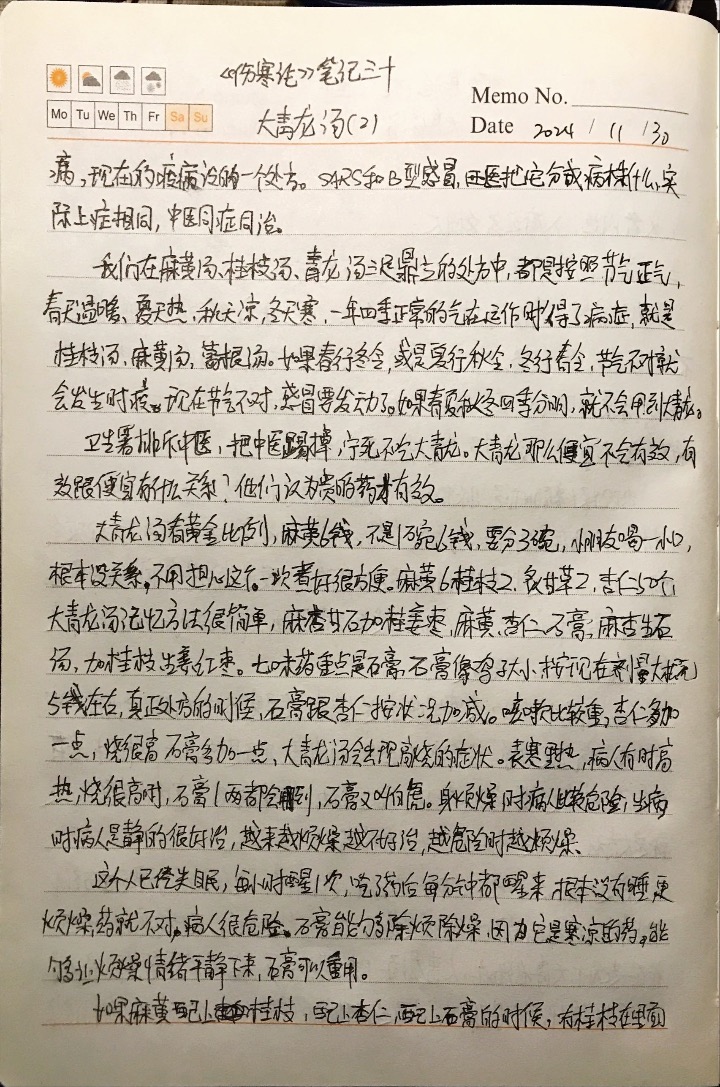 《伤寒论》笔记三十
Memo No.
Mo Tu We Th Fr Sa Su
大青龙汤(2)
Date 2024 / 11 / 30
病,现在的疫病治的一个处方。SARS和B型感冒,西医把它分成病株什么,实
际上症相同,中医同症同治。
我们在麻黄汤、桂枝汤、青龙汤三足鼎立的处方中,都是按照节气正气,
春天温暖、夏天热,秋天凉,冬天寒,一年四季正常的气在运作时得了病症,就是
桂枝汤,麻黄汤,葛根汤。如果春行冬令,或是夏行秋令,冬行春令,节气不对就
会发生时疫。现在节气不对,感冒要发动了。如果春夏秋冬四季分明,就不会用到大青龙。
卫生署排斥中医,把中医踢掉,宁死不会大青龙。大青龙那么便宜不会有效,有
效跟便宜有什么关系?他们认为贵的药才有效。
大青龙汤看黄金比例,麻黄6钱,不是1碗6钱,要分3碗,小朋友喝一小口,
根本没关系,不用担心这个。一次煮好很方便。麻黄6桂枝2、炙甘草2,杏仁50个,
大青龙汤记忆方法很简单,麻杏甘石加桂姜枣,麻黄、杏仁、石膏,麻杏甘石
汤,加桂枝生姜红枣。七味药重点是石膏,石膏像鸡子大小,按现在剂量大概
5钱左右,真正处方的时候,石膏跟杏仁按状况加减。咳嗽比较重,杏仁多加
一点,烧很高石膏多加一点,大青龙汤会出现高烧的症状。表寒里热,病人有时高
热,烧很高时,石膏1两都会用到,石膏又叫白虎。身烦燥时病人比较危险,生病
时病人是静的很好治,越来越烦燥越不好治,越危险时越烦燥。
这个人已经失眠,每小时醒1次,吃了药后每分钟都醒来,根本没有睡,更
烦燥,药就不对。病人很危险。石膏能够多除烦除燥,因为它是寒凉的药。能
够让烦燥情绪平静下来,石膏可以重用。
如果麻黄配上桂枝,配上杏仁,配上石膏的时候,有桂枝在里面